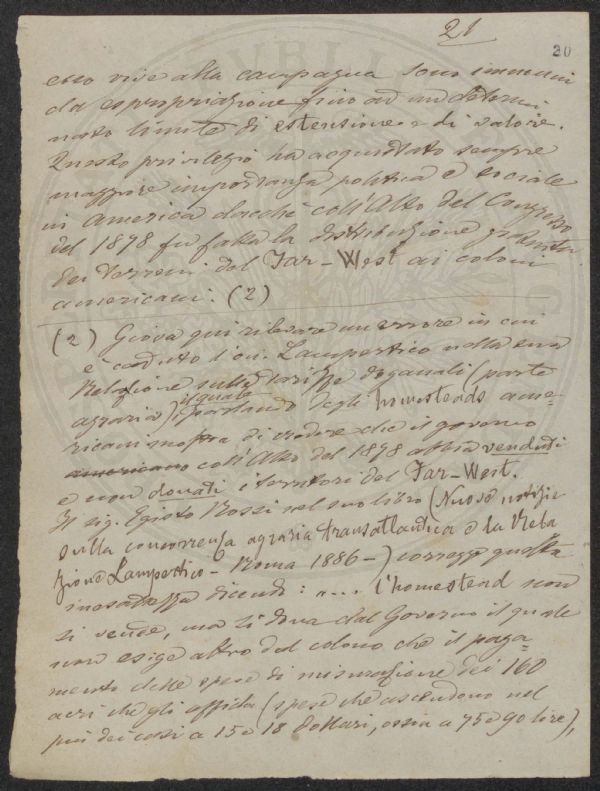 21
20
esso vive alla campagna sono immuni
da espropriazione fino ad un determi
nato limite di estensione e di valore.
Questo privilegio ha acquistato sempre
maggiore importanza politica e sociale
in America dacchè coll'Atto del Congresso
del 1878 fu fatta la distribuzione gratuita
dei terreni del Far-West ai coloni
americani. (2)
(2) Giova qui rilevare un errore in cui
è caduto l'on. Lampertico nella sua
Relazione sulle tariffe doganali (parte
agraria) il quale parlando degli homesteads ame=
ricani mostra di credere che il governo
americano coll'Atto del 1878 abbia venduti
e non donati i territori del Far-West.
Il sig. Egisto Rossi nel suo libro (Nuove notizie
sulla concorrenza agraria transatlantica e la Rela
zione Lampertico - Roma 1886 -) corregge questa
inesattezza dicendo: "... l'homestead non
si vende, ma si dona dal Governo il quale
non esige altro dal colono che il paga=
mento delle spese di misurazione dei 160
acri che gli affida (spese che ascendono nel
più dei casi a 15 o 18 dollari, ossia a 75 o 90 lire),